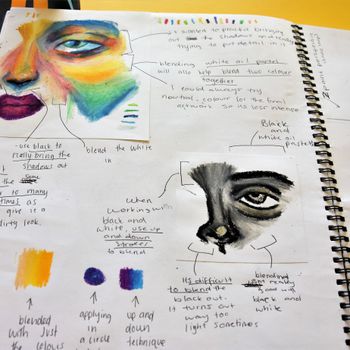 I wanted to practice bringing
out the shadows and really
trying to put detail in it
blending white oil pastel
will also help blend two colour
together
I could always try
neutral colour for the final
artwork so its less intense
use black to
really bring the
shadows out
blend the white
in
the same
so many
times as
give it a
dirty look
Black
and
white oil
pastels
when
working with
black and
white, use up
and down
strokes
to blend
Its difficult
to blend the
black out.
It turns out
way too
light sometimes
blending
really
black and
white
blended
with just
the colours
applying
in
a circle
up and
down
technique